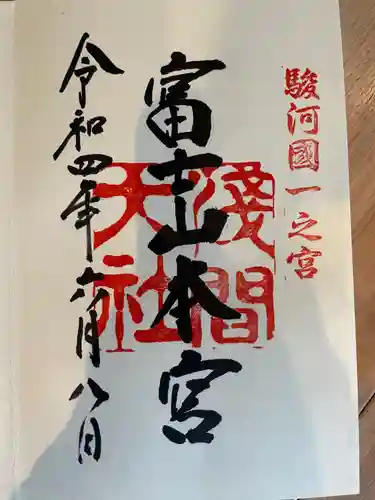 駿河國一之宮
富士山本宮
淺間大社
令和四年六月八日